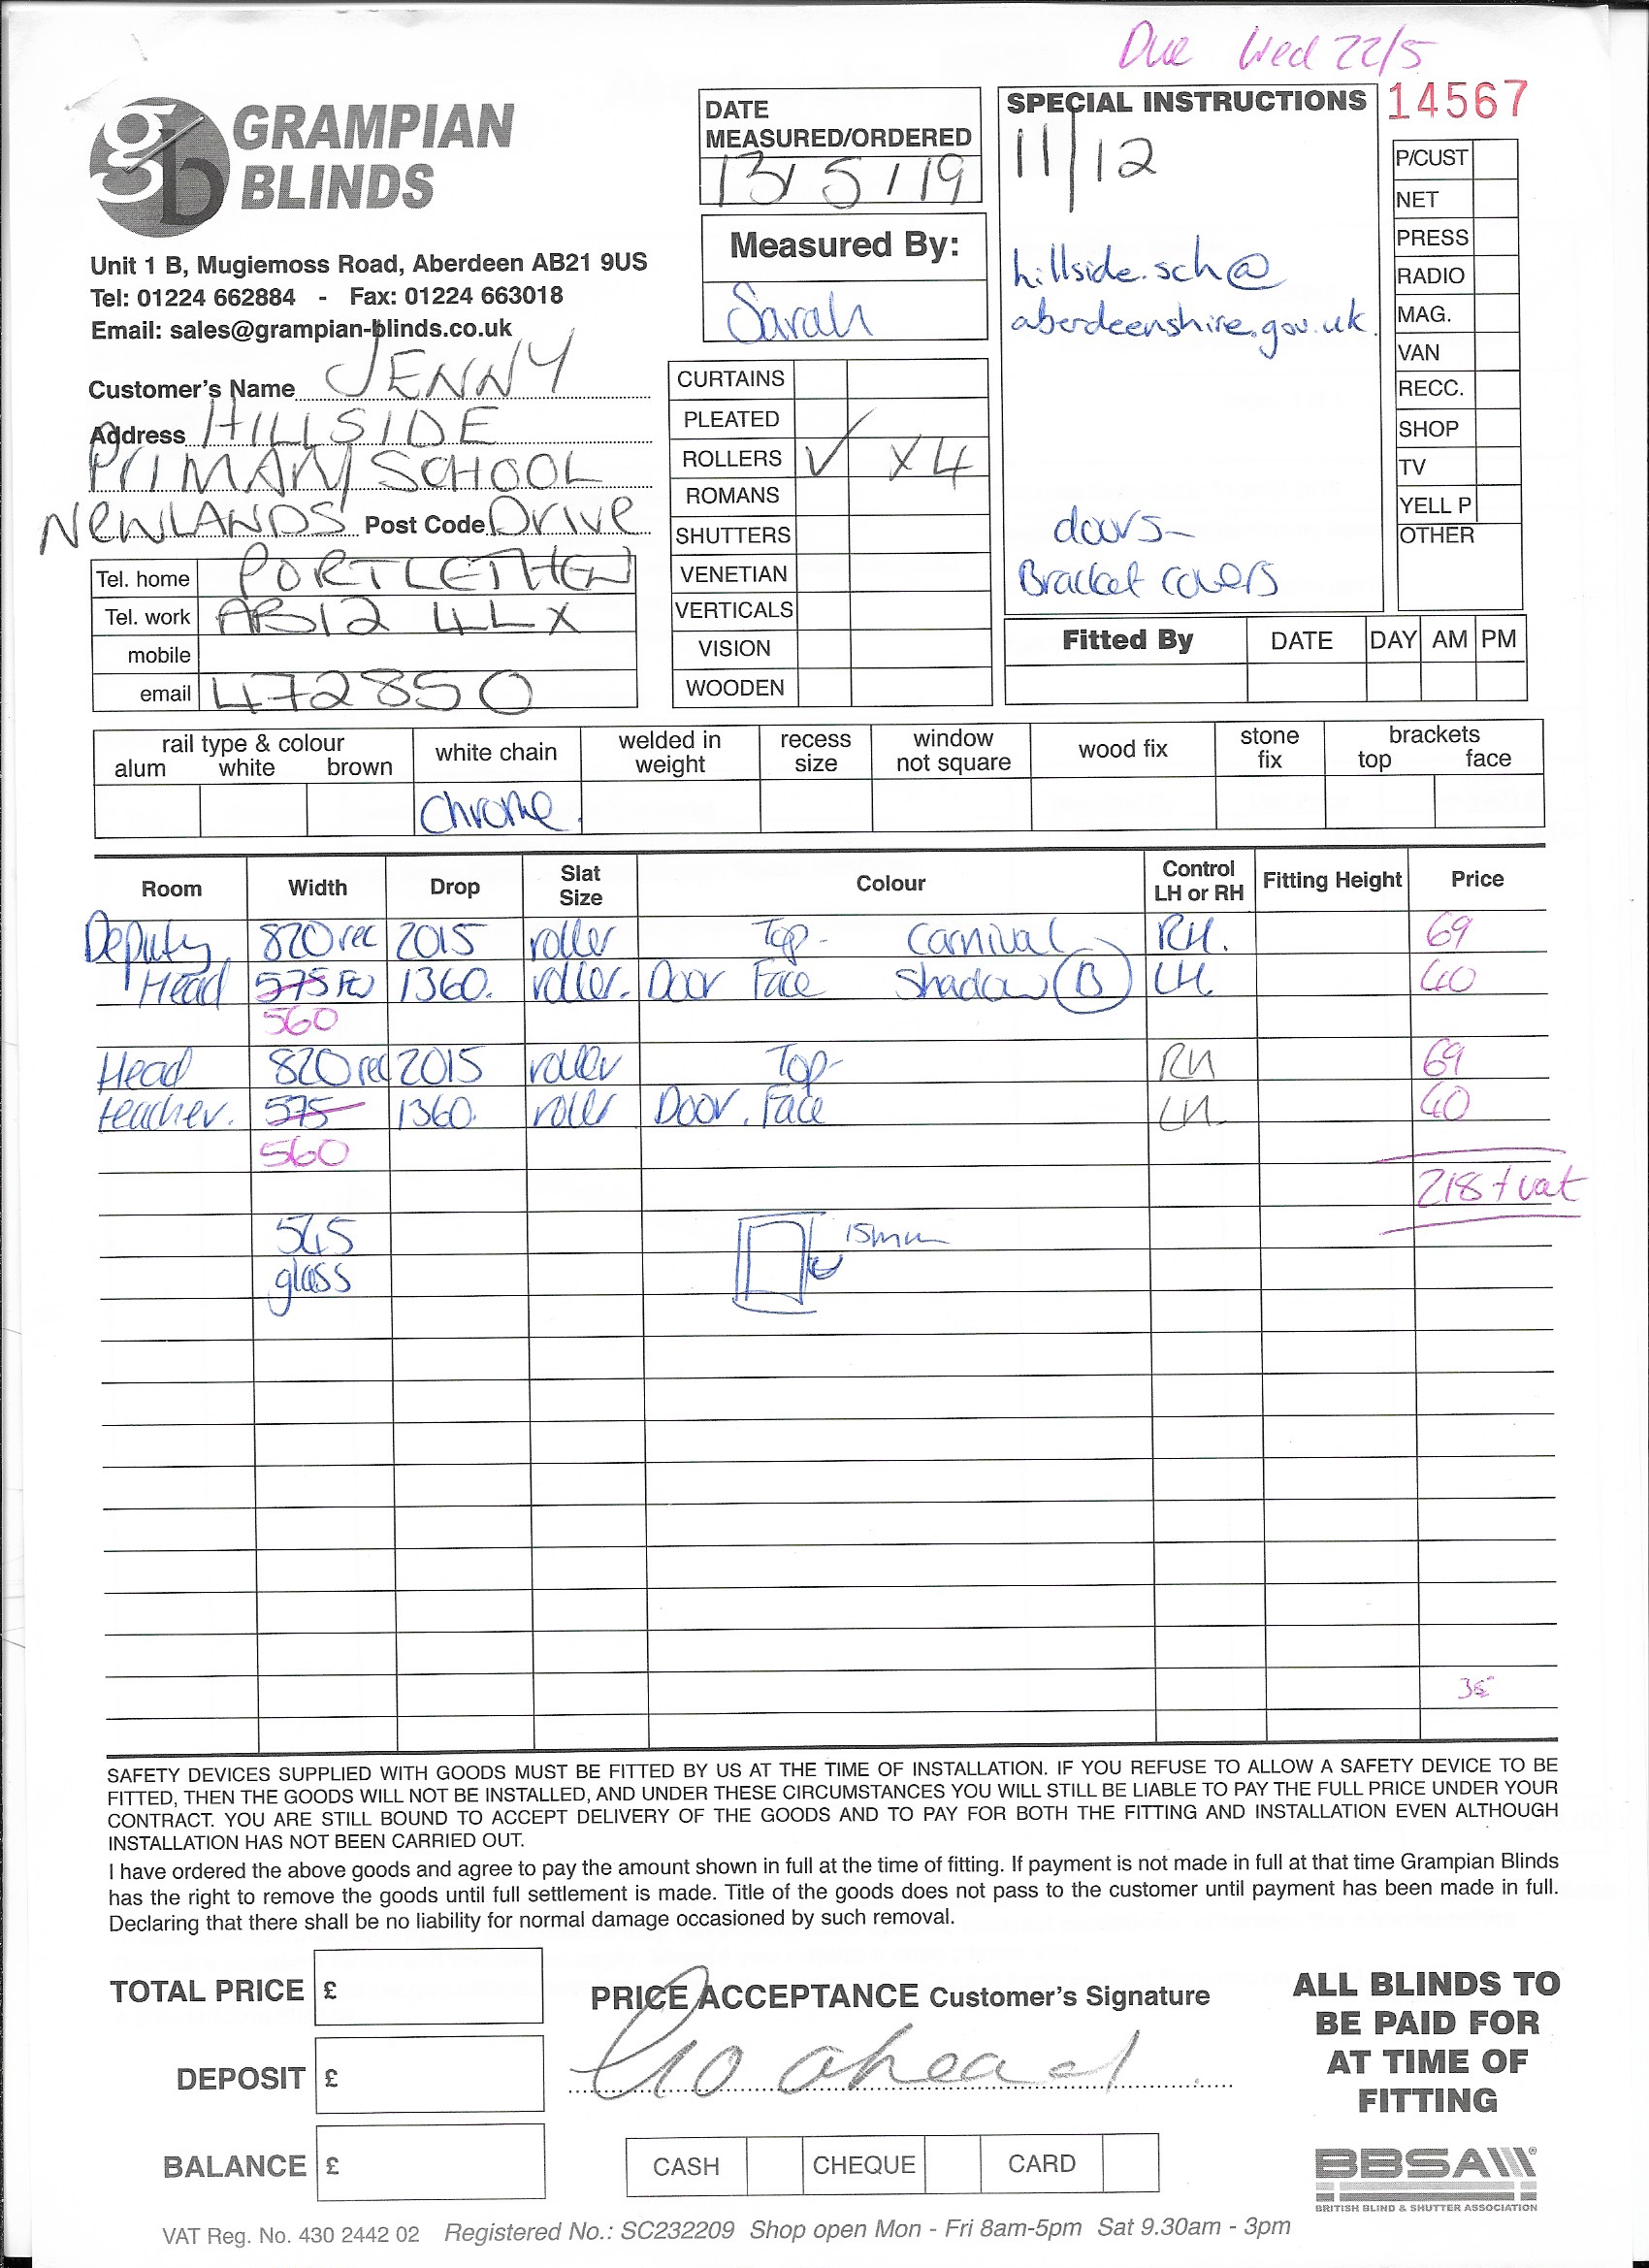 Due Wed 22/5
GRAMPIAN
BLINDS
Unit 1 B, Mugiemoss Road, Aberdeen AB21 9US
Tel: 01224 662884 - Fax: 01224 663018
Email: sales@grampian-blinds.co.uk
Customer's Name JENNY
Address HILLSIDE
PRIMARY SCHOOL
NEWLANDS Post Code Drive
Tel. home PORTLETHEN
Tel. work AB12 4LX
mobile
email 472850
DATE
MEASURED/ORDERED
13/5/19
Measured By:
Sarah
CURTAINS
PLEATED
ROLLERS ✓ x4
ROMANS
SHUTTERS
VENETIAN
VERTICALS
VISION
WOODEN
SPECIAL INSTRUCTIONS
11/12
hillside.sch@
aberdeenshire.gov.uk
doors-
Bracket covers
14567
P/CUST
NET
PRESS
RADIO
MAG.
VAN
RECC.
SHOP
TV
YELL P
OTHER
Fitted By DATE DAY AM PM
rail type & colour white chain welded in weight recess size window not square wood fix stone fix brackets
alum white brown top face
Chrome
Room Width Drop Slat Size Colour Control LH or RH Fitting Height Price
Deputy 820 rec 2015 roller Top- Carnival RH. 69
Head 575 1360. roller. Door Face Shadow (B) LH. 40
560
Head 820 rec 2015 roller Top- RH 69
teacher. 575 1360. roller Door. Face LH 40
560
218 + vat
545 15mm
glass
SAFETY DEVICES SUPPLIED WITH GOODS MUST BE FITTED BY US AT THE TIME OF INSTALLATION. IF YOU REFUSE TO ALLOW A SAFETY DEVICE TO BE
FITTED, THEN THE GOODS WILL NOT BE INSTALLED, AND UNDER THESE CIRCUMSTANCES YOU WILL STILL BE LIABLE TO PAY THE FULL PRICE UNDER YOUR
CONTRACT. YOU ARE STILL BOUND TO ACCEPT DELIVERY OF THE GOODS AND TO PAY FOR BOTH THE FITTING AND INSTALLATION EVEN ALTHOUGH
INSTALLATION HAS NOT BEEN CARRIED OUT.
I have ordered the above goods and agree to pay the amount shown in full at the time of fitting. If payment is not made in full at that time Grampian Blinds
has the right to remove the goods until full settlement is made. Title of the goods does not pass to the customer until payment has been made in full.
Declaring that there shall be no liability for normal damage occasioned by such removal.
TOTAL PRICE £
DEPOSIT £
BALANCE £
PRICE ACCEPTANCE Customer's Signature
Go ahead
CASH CHEQUE CARD
ALL BLINDS TO
BE PAID FOR
AT TIME OF
FITTING
BBSA
BRITISH BLIND & SHUTTER ASSOCIATION
VAT Reg. No. 430 2442 02 Registered No.: SC232209 Shop open Mon - Fri 8am-5pm Sat 9.30am - 3pm